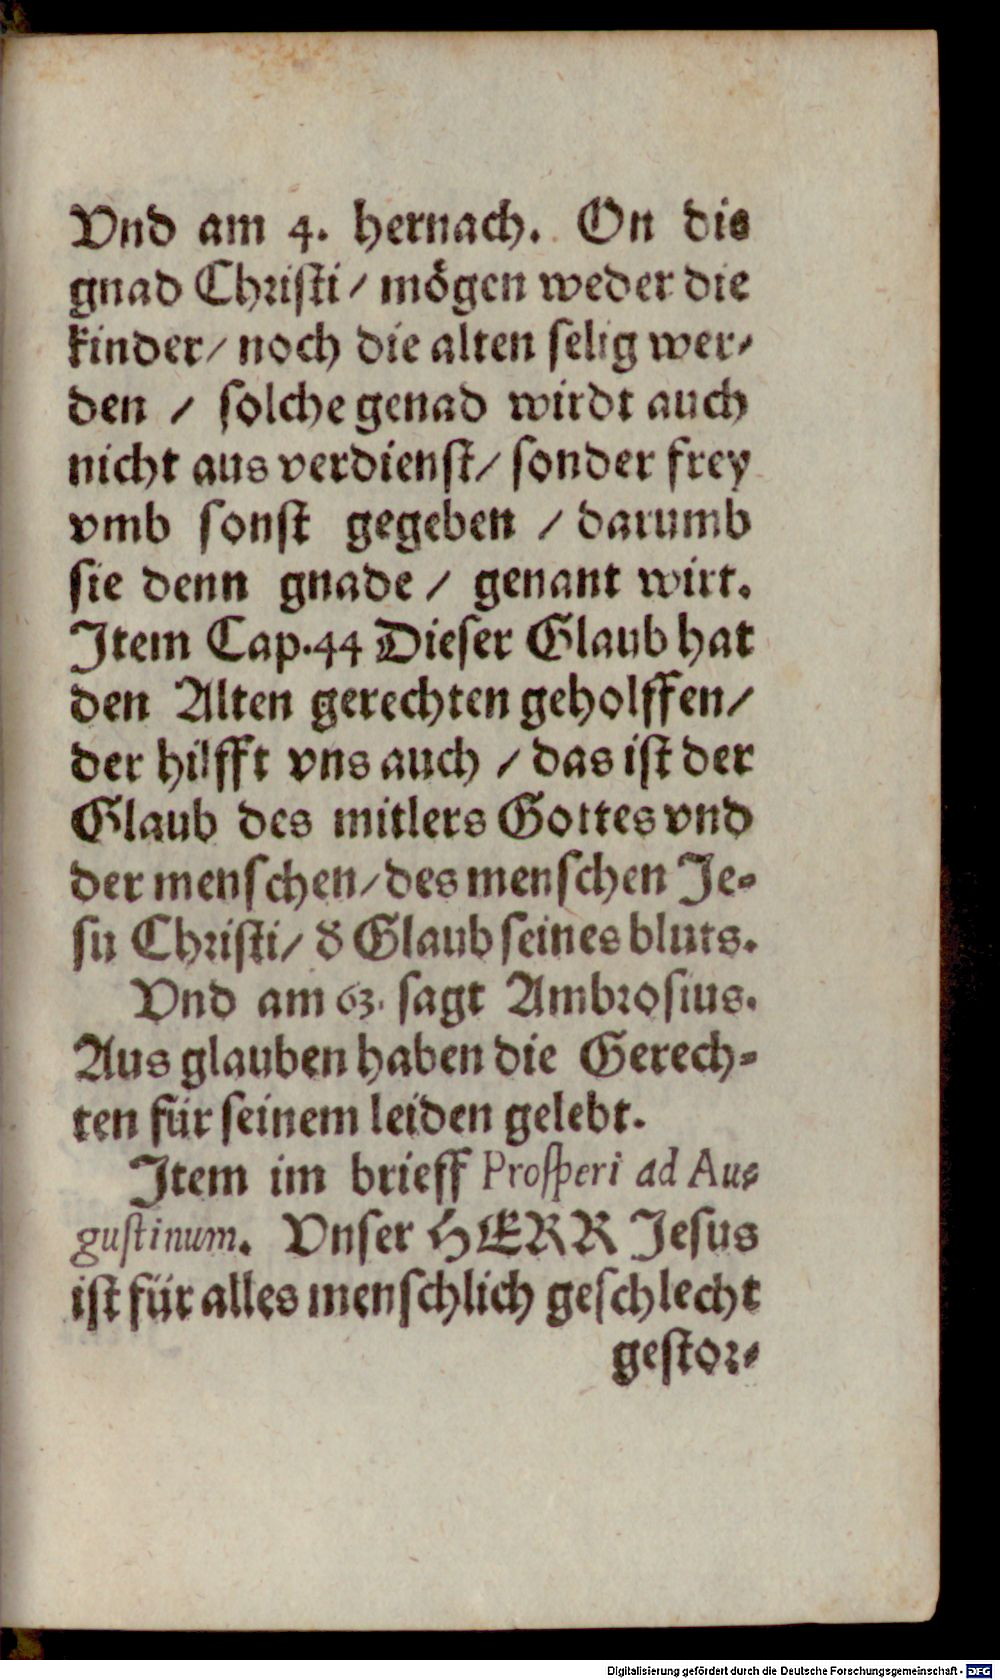 Vnd am 4. hernach. On dis
gnad Chꝛiſti / moͤgen weder die
kinder / noch die alten ſelig wer⸗
den / ſolche genad wirdt auch
nicht aus verdienſt / ſonder frey
vmb ſonſt gegeben / darumb
ſie denn gnade / genant wirt.
Item Cap. 44 Dieſer Glaub hat
den Alten gerechten geholffen /
der hilfft vns auch / das iſt der
Glaub des mitlers Gottes vnd
der menſchen / des menſchen Je⸗
ſu Chꝛiſti / d̕ Glaub ſeines bluts.
Vnd am 63. ſagt Ambꝛoſius.
Aus glauben haben die Gerech⸗
ten für ſeinem leiden gelebt.
Item im brieff Proſperi ad Au⸗
guſtinum. Vnſer HERR Jeſus
iſt für alles menſchlich geſchlecht
geſtoꝛ⸗
Digitalisierung gefördert durch die Deutsche Forschungsgemeinschaft - DFG